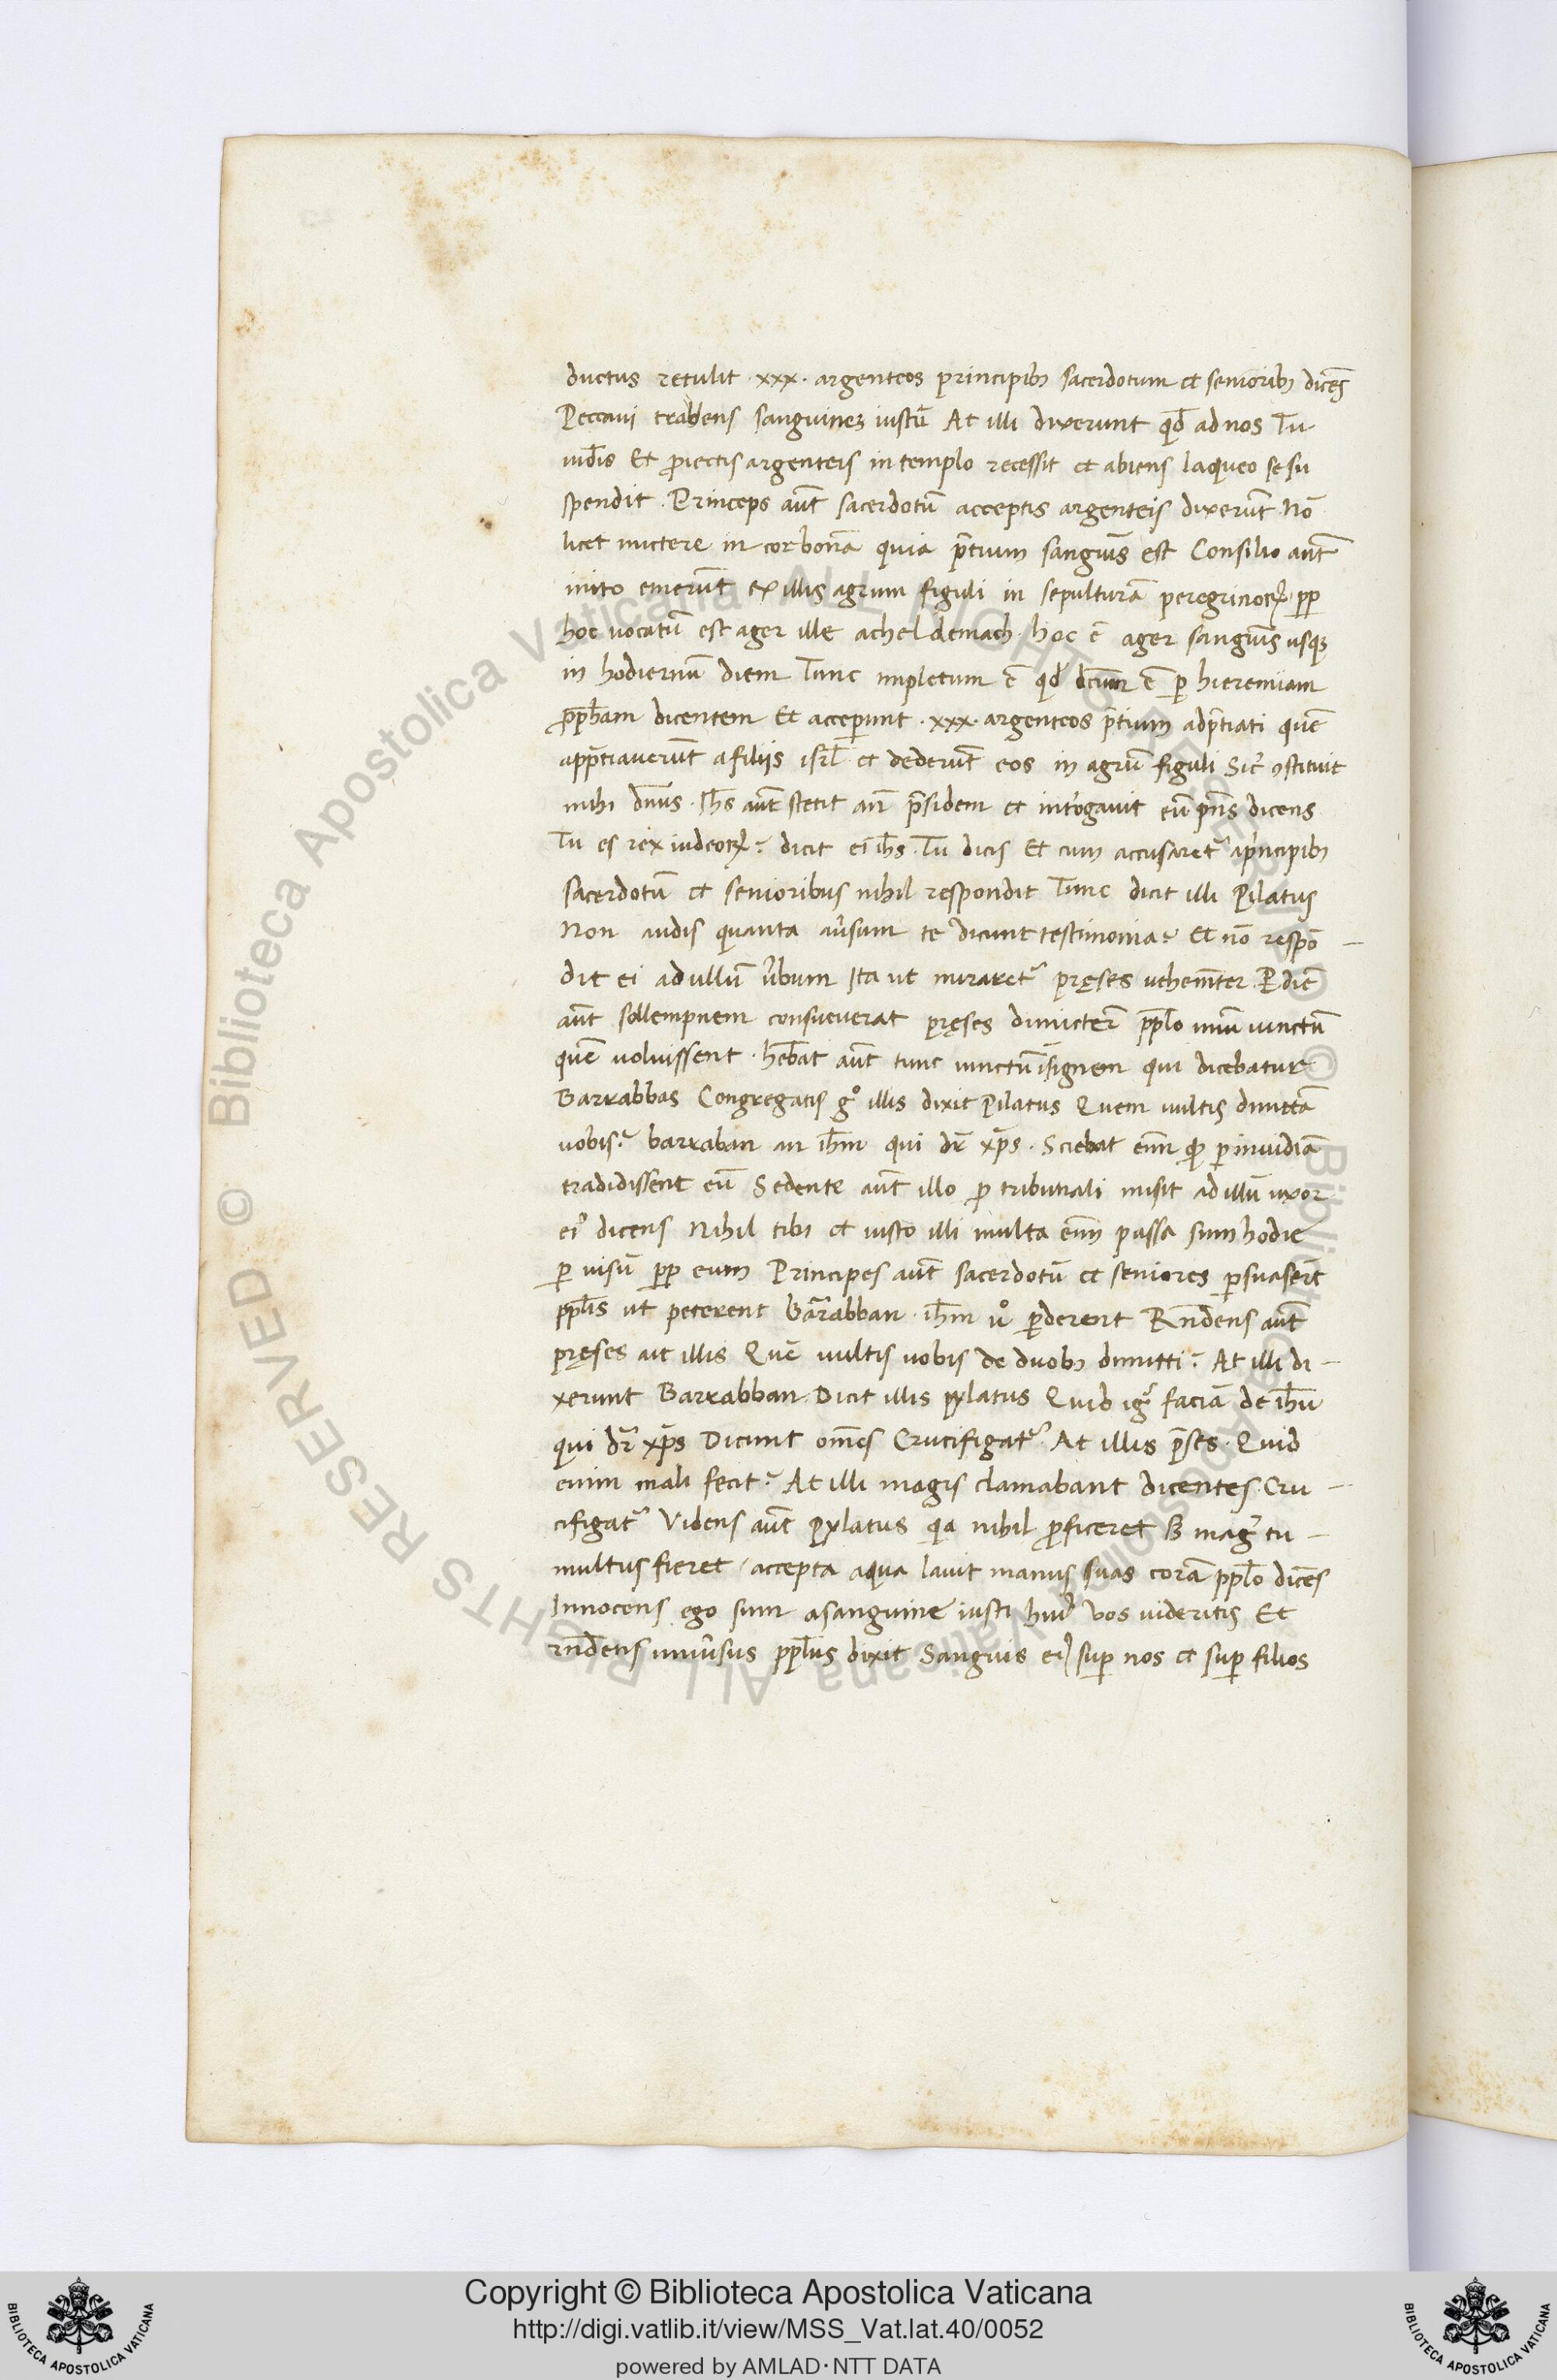 ductus retulit · xxx · argenteos principibꝫ sacerdotum et senioribꝫ dicēs
Peccaui tradens sanguineꝫ iustū At illi dixerunt qd̄ ad nos Tu
uid̄is Et ꝓiectis argenteis in templo recessit et abiens laqueo se su
spendit · Princeps aūt sacerdotū acceptis argenteis dixerūt Nō
licet mictere in corbonā quia p̄tium sanguīs est Consilio aūt
inito emerūt ex illis agrum figuli in sepulturā peregrinoꝝ · pp̄
hoc uocatū est ager ille acheldemach · hoc ē ager sanguīs usqꝫ
in hodiernū diem Tunc impletum ē qd̄ dc̄um ē ꝑ hieremiam
ꝓph̄am dicentem Et acceꝑunt · xxx · argenteos p̄tium adp̄tiati quē
app̄tiauerūt a filijs isrl̄ et dederūt eos in agrū figuli Sic̄ ꝯstituit
mihi dn̄us · Ih̄s aūt stetit an̄ p̄sidem et int̄rogauit eū p̄ns dicens
Tu es rex iudeoꝝ? dicit ei ih̄s · Tu dicis Et cum accusaret᷑ a pͥncipibꝫ
sacerdotū et senioribus nihil respondit Tunc dicit illi Pilatus
Non audis quanta aūsum te dicunt testimonia? Et nō respō –
dit ei ad ullū ūbum Ita ut miraret᷑ pręses uehem̄ter · P diē
aūt sollempnem consueuerat pręses dimicter̄ ppl̄o unū uinctū
quē uoluissent · heb̄at aūt tunc uinctū īsignem qui dicebatur
Barrabbas Congregatis gͦ illis dixit Pilatus Quem uultis dimittā
uobis? barraban an ih̄m qui dr̄ xp̄s · Sciebat en̄m qͩ ꝑ inuidiā
tradidissent eū Sedente aūt illo ꝓ tribunali misit ad illū uxor
eiꝰ dicens Nihil tibi et iusto illi multa en̄m passa sum hodie
ꝑ uisū pp̄ eum Principes aūt sacerdotū et seniores ꝑsuaserūt
ppl̄is ut peterent Barrabban · ih̄m uͦ ꝑderent Rn̄dens aūt
pręses ait illis Quē uultis uobis de duobꝫ dimitti? At illi di –
xerunt Barrabban · Dicit illis pylatus Quid igͥ faciā de ih̄u
qui dr̄ xp̄s Dicunt om̄es Crucifigat᷑ At illis p̄ses · Quid
enim mali fecit? At illi magis clamabant dicentes · Cru –
cifigat᷑ Videns aūt Pylatus qa nihil ꝓficeret sꝫ magͥ tu –
multus fieret / accepta aqua lauit manus suas corā ppl̄o dicēs
Innocens ego sum a sanguine iusti huiꝰ Vos uideritis Et
rn̄dens uniūsus ppl̄us dixit Sanguis eiꝰ suꝑ nos et suꝑ filios
Copyright © Biblioteca Apostolica Vaticana
http://digi.vatlib.it/view/MSS_Vat.lat.40/0052
powered by AMLAD·NTT DATA
BIBLIOTECA APOSTOLICA VATICANA
BIBLIOTECA APOSTOLICA VATICANA